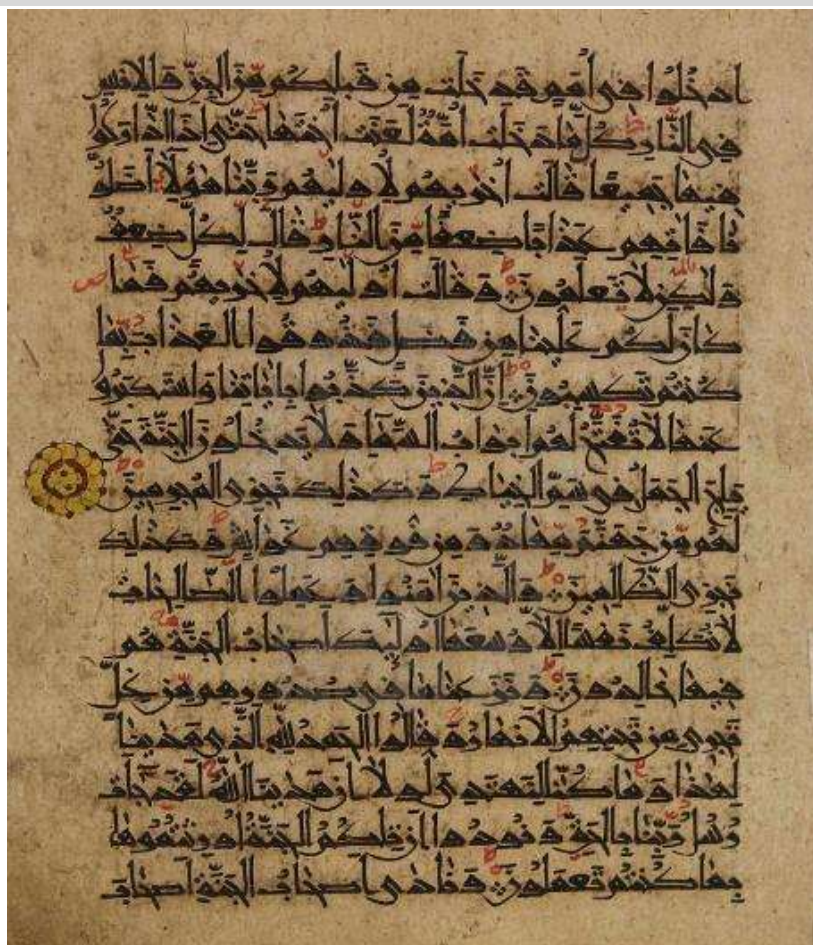 ادخلوا في أمم قد خلت من قبلكم من الجن والإنس
في النار كلما دخلت أمة لعنت أختها حتى إذا اداركوا
فيها جميعا قالت أخريهم لأوليهم ربنا هؤلاء أضلو
نا فآتهم عذابا ضعفا من النار قال لكل ضعف
ولكن لا تعلمون وقالت أوليهم لأخريهم فما
كان لكم علينا من فضل فذوقوا العذاب بما
كنتم تكسبون إن الذين كذبوا بآياتنا واستكبروا
عنها لا تفتح لهم أبواب السماء ولا يدخلون الجنة حتى
يلج الجمل في سم الخياط وكذلك نجزي المجرمين
لهم من جهنم مهاد ومن فوقهم غواش وكذلك
نجزي الظالمين والذين آمنوا وعملوا الصالحات
لا نكلف نفسا إلا وسعها أولئك أصحاب الجنة هم
فيها خالدون ونزعنا ما في صدورهم من غل
تجري من تحتهم الأنهار وقالوا الحمد لله الذي هدينا
لهذا وما كنا لنهتدي لولا أن هدينا الله لقد جاءت
رسل ربنا بالحق ونودوا أن تلكم الجنة أورثتموها
بما كنتم تعملون ونادى أصحاب الجنة أصحاب